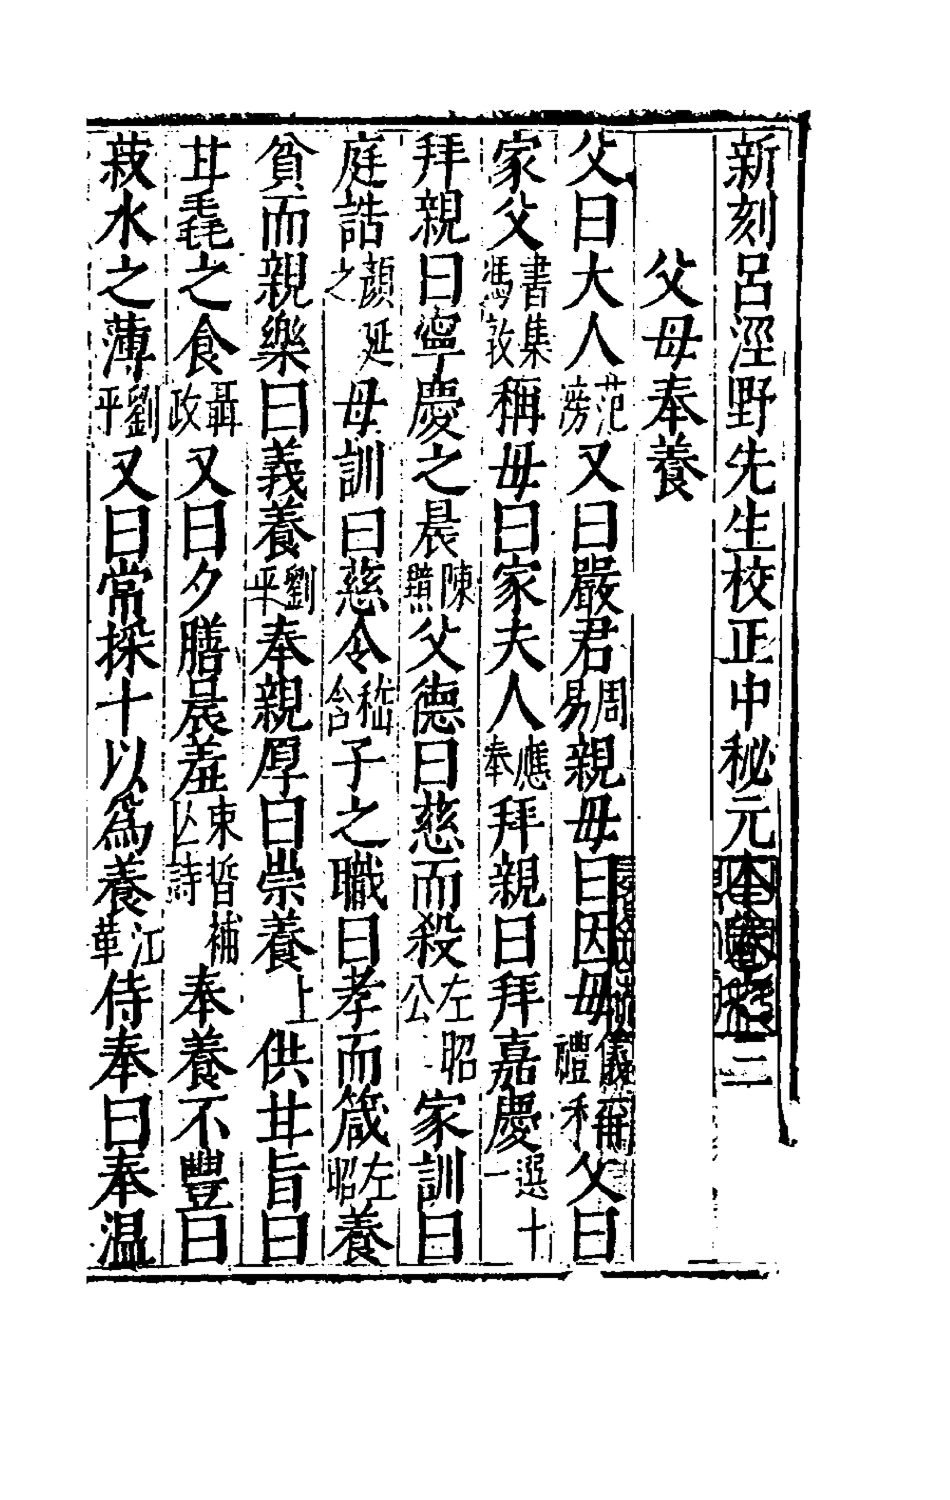 新刻呂涇野先生校正中秘元本卷之二
父母奉養
父曰大人范滂又曰嚴君周易親母曰因母儀禮稱父曰
家父書集馮敦稱母曰家夫人應奉拜親曰拜嘉慶選十一
拜親曰寧慶之晨陳㬌父德曰慈而殺左昭公家訓曰
庭誥顏延之母訓曰慈令嵇含子之職曰孝而箴左昭養
貧而親樂曰義養劉平奉親厚曰崇養上供甘旨曰
甘毳之食聶政又曰夕膳晨羞束晳補亡詩奉養不豐曰
菽水之薄劉平又曰常採十以爲養江革侍奉曰奉温